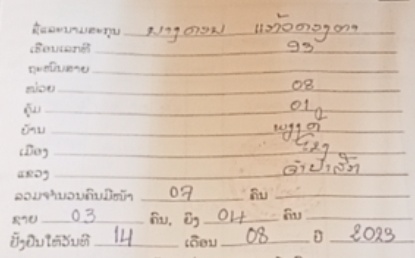 ຊື່ແລະນາມສະກຸນ ນາງ ດວນ ແກ້ວດວງຕາ
ເຮືອນເລກທີ 93
ຖະໜົນສາຍ
ໜ່ວຍ 08
ຄຸ້ມ 01
ບ້ານ
ເມືອງ
ແຂວງ ຈຳປາສັກ
ລວມຈຳນວນຄົນມີໜ້າ 07 ຄົນ
ຊາຍ 03 ຄົນ, ຍິງ 04 ຄົນ
ຢັ້ງຢືນໃຫ້ວັນທີ 14 ເດືອນ 08 ປີ 2023